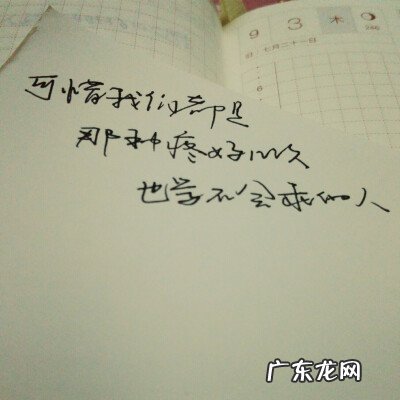 9 3 木
246
旧 七月二十一日
可惜我们都是
那种疼好几次
也学不会乖的人
广东龙网